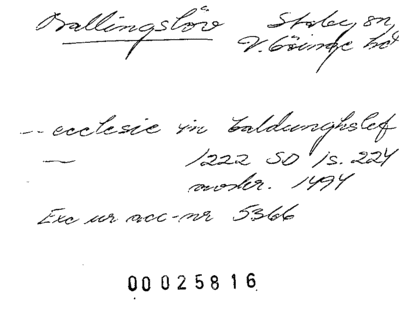 Ballingslöv Stoby sn,
V. Göinge hd
-- ecclesie in baldunghslef
— 1222 SD 1 s. 224
avskr. 1494
Exc ur acc-nr 5366
00025816